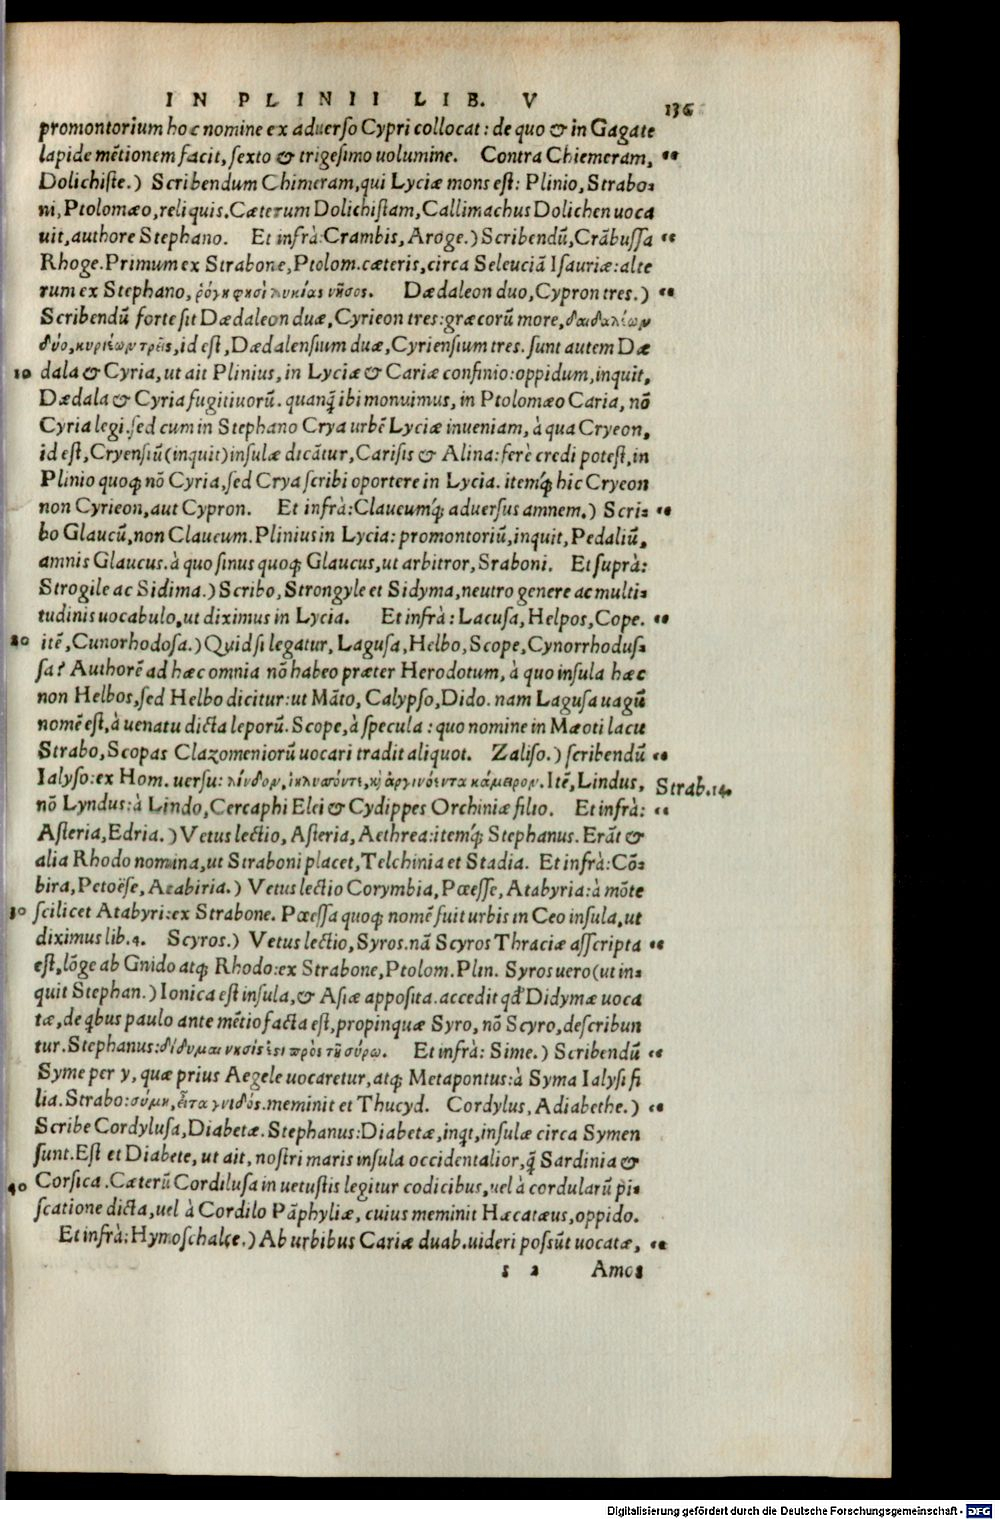 IN PLINII LIB. V 136
promontorium hoc nomine ex aduerso Cypri collocat: de quo & in Gagate
lapide mẽtionem facit, sexto & trigesimo uolumine. Contra Chiemeram,
Dolichiste.) Scribendum Chimeram, qui Lyciæ mons est: Plinio, Strabo-
ni, Ptolomæo, reliquis. Cæterum Dolichistam, Callimachus Dolichen uoca
uit, authore Stephano. Et infrà: Crambis, Aroge.) Scribendũ, Crãbussa
Rhoge. Primum ex Strabone, Ptolom. cæteris, circa Seleuciã Isauriæ: alte
rum ex Stephano, ῥόγη φησὶ λυκίας νῆσος. Dædaleon duo, Cypron tres.)
Scribendũ forte sit Dædaleon duæ, Cyrieon tres: græcorũ more, δαιδαλέων
δύο, κυριέων τρεῖς, id est, Dædalensium duæ, Cyriensium tres. sunt autem Dæ
10 dala & Cyria, ut ait Plinius, in Lyciæ & Cariæ confinio: oppidum, inquit,
Dædala & Cyria fugitiuorũ. quanq̃ ibi monuimus, in Ptolomæo Caria, nõ
Cyria legi. sed cum in Stephano Crya urbẽ Lyciæ inueniam, à qua Cryeon,
id est, Cryensiũ (inquit) insulæ dicãtur, Carisis & Alina: ferè credi potest, in
Plinio quoq; nõ Cyria, sed Crya scribi oportere in Lycia. itemq́; hic Cryeon
non Cyrieon, aut Cypron. Et infrà: Claucumq́; aduersus amnem.) Scri-
bo Glaucũ, non Claucum. Plinius in Lycia: promontoriũ, inquit, Pedaliũ,
amnis Glaucus. à quo sinus quoq; Glaucus, ut arbitror, Sraboni. Et suprà:
Strogile ac Sidima.) Scribo, Strongyle et Sidyma, neutro genere ac multi-
tudinis uocabulo, ut diximus in Lycia. Et infrà: Lacusa, Helpos, Cope.
20 itẽ, Cunorhodosa.) Quid si legatur, Lagusa, Helbo, Scope, Cynorrhodus-
sa? Authorẽ ad hæc omnia nõ habeo præter Herodotum, à quo insula hæc
non Helbos, sed Helbo dicitur: ut Mãto, Calypso, Dido. nam Lagusa uagũ
nomẽ est, à uenatu dicta leporũ. Scope, à specula: quo nomine in Mæoti lacu
Strabo, Scopas Clazomeniorũ uocari tradit aliquot. Zaliso.) scribendũ
Ialyso: ex Hom. uersu: λίνδον, ἰηλυσόντε, κὶ ἀργινόεντα κάμειρον. Itẽ, Lindus, Strab.14.
nõ Lyndus: à Lindo, Cercaphi Elci & Cydippes Orchiniæ filio. Et infrà:
Asteria, Edria.) Vetus lectio, Asteria, Aethrea: itemq́; Stephanus. Erãt &
alia Rhodo nomina, ut Straboni placet, Telchinia et Stadia. Et infrà: Cõ-
bira, Petoëse, Atabiria.) Vetus lectio Corymbia, Pœesse, Atabyria: à mõte
30 scilicet Atabyri: ex Strabone. Pœessa quoq; nomẽ fuit urbis in Ceo insula, ut
diximus lib. 4. Scyros.) Vetus lectio, Syros. nã Scyros Thraciæ asscripta
est, lõge ab Gnido atq; Rhodo: ex Strabone, Ptolom. Plin. Syros uero (ut in-
quit Stephan.) Ionica est insula, & Asiæ apposita. accedit qd̃ Didymæ uoca
tæ, de qbus paulo ante mẽtio facta est, propinquæ Syro, nõ Scyro, describun
tur. Stephanus: δίδυμαι νησίς ἐστι πρὸς τῇ σύρῳ. Et infrà: Sime.) Scribendũ
Syme per y, quæ prius Aegele uocaretur, atq; Metapontus: à Syma Ialysi fi
lia. Strabo: σύμη, εἶτα γνιδός. meminit et Thucyd. Cordylus, Adiabethe.)
Scribe Cordylusa, Diabetæ. Stephanus: Diabetæ, inqt, insulæ circa Symen
sunt. Est et Diabete, ut ait, nostri maris insula occidentalior, q̃ Sardinia &
40 Corsica. Cæterũ Cordilusa in uetustis legitur codicibus, uel à cordularũ pi-
scatione dicta, uel à Cordilo Pãphyliæ, cuius meminit Hæcatæus, oppido.
Et infrà: Hymoschalce.) Ab urbibus Cariæ duab. uideri possũt uocatæ,
s 2 Amos
Digitalisierung gefördert durch die Deutsche Forschungsgemeinschaft - DFG